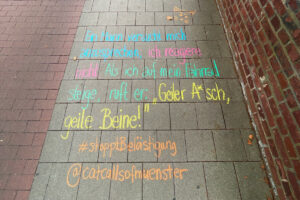 Ein Mann versucht mich
anzusprechen, ich reagiere
nicht. Als ich auf mein Fahrrad
steige ruft er: „Geiler A*sch,
geile Beine!"
#stopptBelästigung
@catcallsofmuenster